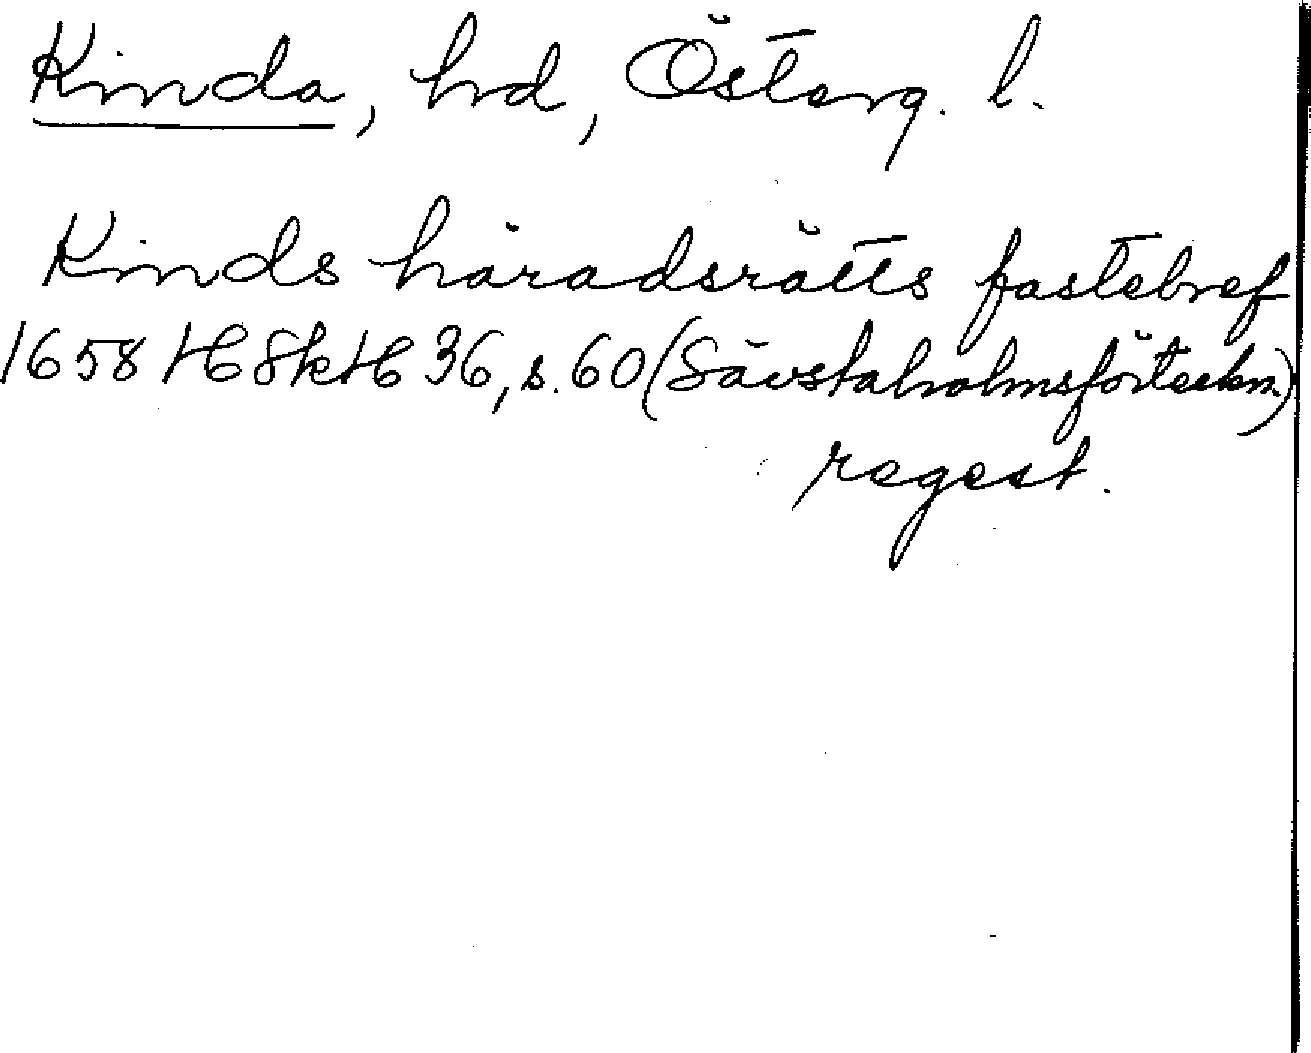 Kinda, hrd, Österg. l.
Kinds häradsrätts fastebref
1658 HSkH 36, s. 60 (Sävstaholmsförteckn.)
regest.